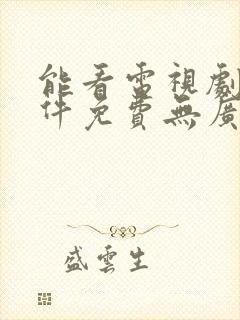 能看雷視劇
件免費無廣
盛雲生